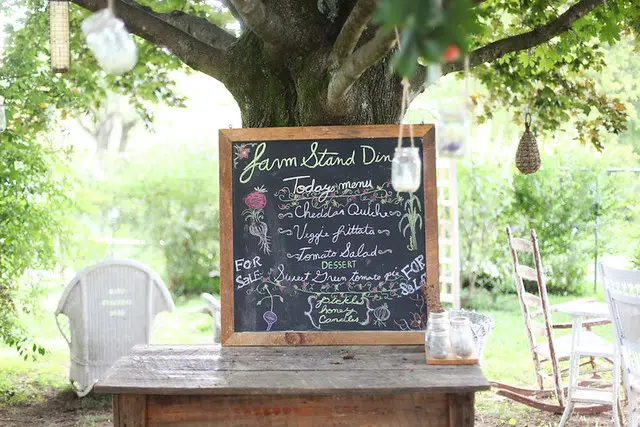 Farm Stand Din
Today menu
~Cheddar Quiche~
~Veggie frittata~
~Tomato Salad~
DESSERT
Sweet Green tomato pie
FOR SALE
FOR SALE
pickles
honey
Candles